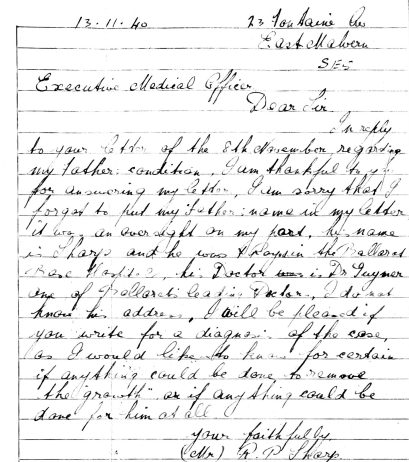 13.11.40 23 Fontaine Ave
East Malvern
SE5
Executive Medical Officer
Dear Sir
In reply
to your letter of the 8th November, regarding
my father condition, I am thankful to you
for answering my letter, I am sorry that I
forgot to put my father name in my letter
it was an oversight on my part, his name
is Sharp and he was X Rays in the Ballarat
Base Hospital, his Doctor was is Dr Guymer
one of Ballarats leading Doctors, I do not
know his address, I will be pleased if
you write for a diagnosis of the case,
as I would like to know for certain
if anything could be done to remove
the "growth" or if anything could be
done for him at all.
your faithfully
(Mr) R. P Sharp